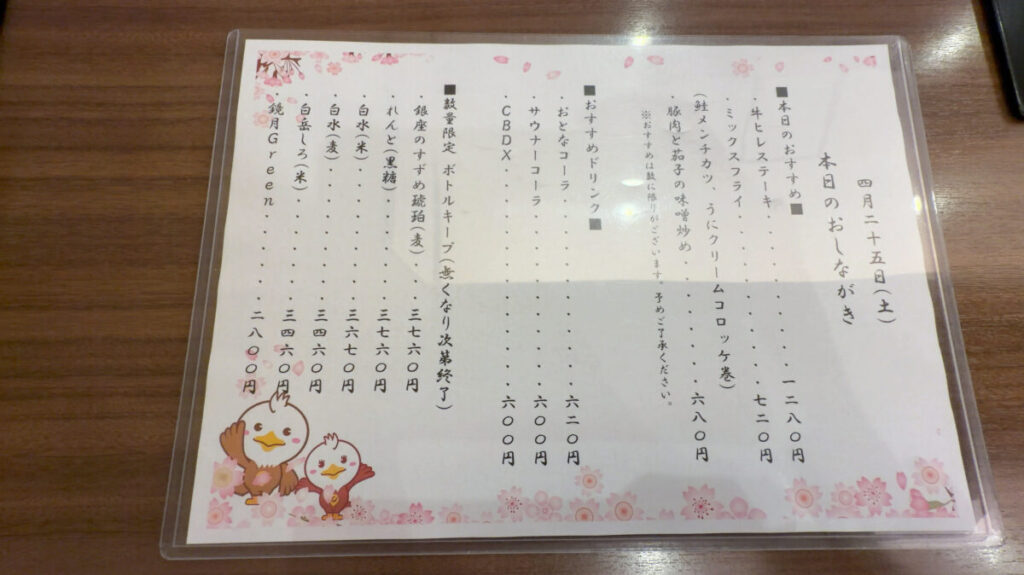 四月二十五日(土)
本日のおしながき
■本日のおすすめ■
・牛ヒレステーキ・・・・・・・・・・一二八〇円
・ミックスフライ・・・・・・・・・・七二〇円
(鮭メンチカツ、うにクリームコロッケ巻)
・豚肉と茄子の味噌炒め・・・・・・・六八〇円
※おすすめは数に限りがございます。予めご了承ください。
■おすすめドリンク■
・おとなコーラ・・・・・・・・・・・六二〇円
・サウナーコーラ・・・・・・・・・・六〇〇円
・CBDX・・・・・・・・・・・・・六〇〇円
■数量限定 ボトルキープ(無くなり次第終了)
・銀座のすずめ琥珀(麦)・・・三七六〇円
・れんと(黒糖)・・・・・・・三七六〇円
・白水(米)・・・・・・・・・三六七〇円
・白水(麦)・・・・・・・・・三四六〇円
・白岳しろ(米)・・・・・・・三四六〇円
・鏡月Green・・・・・・・二八〇〇円